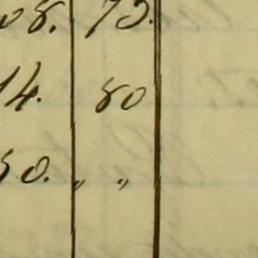 08. 75.
14. 80
50. „ „